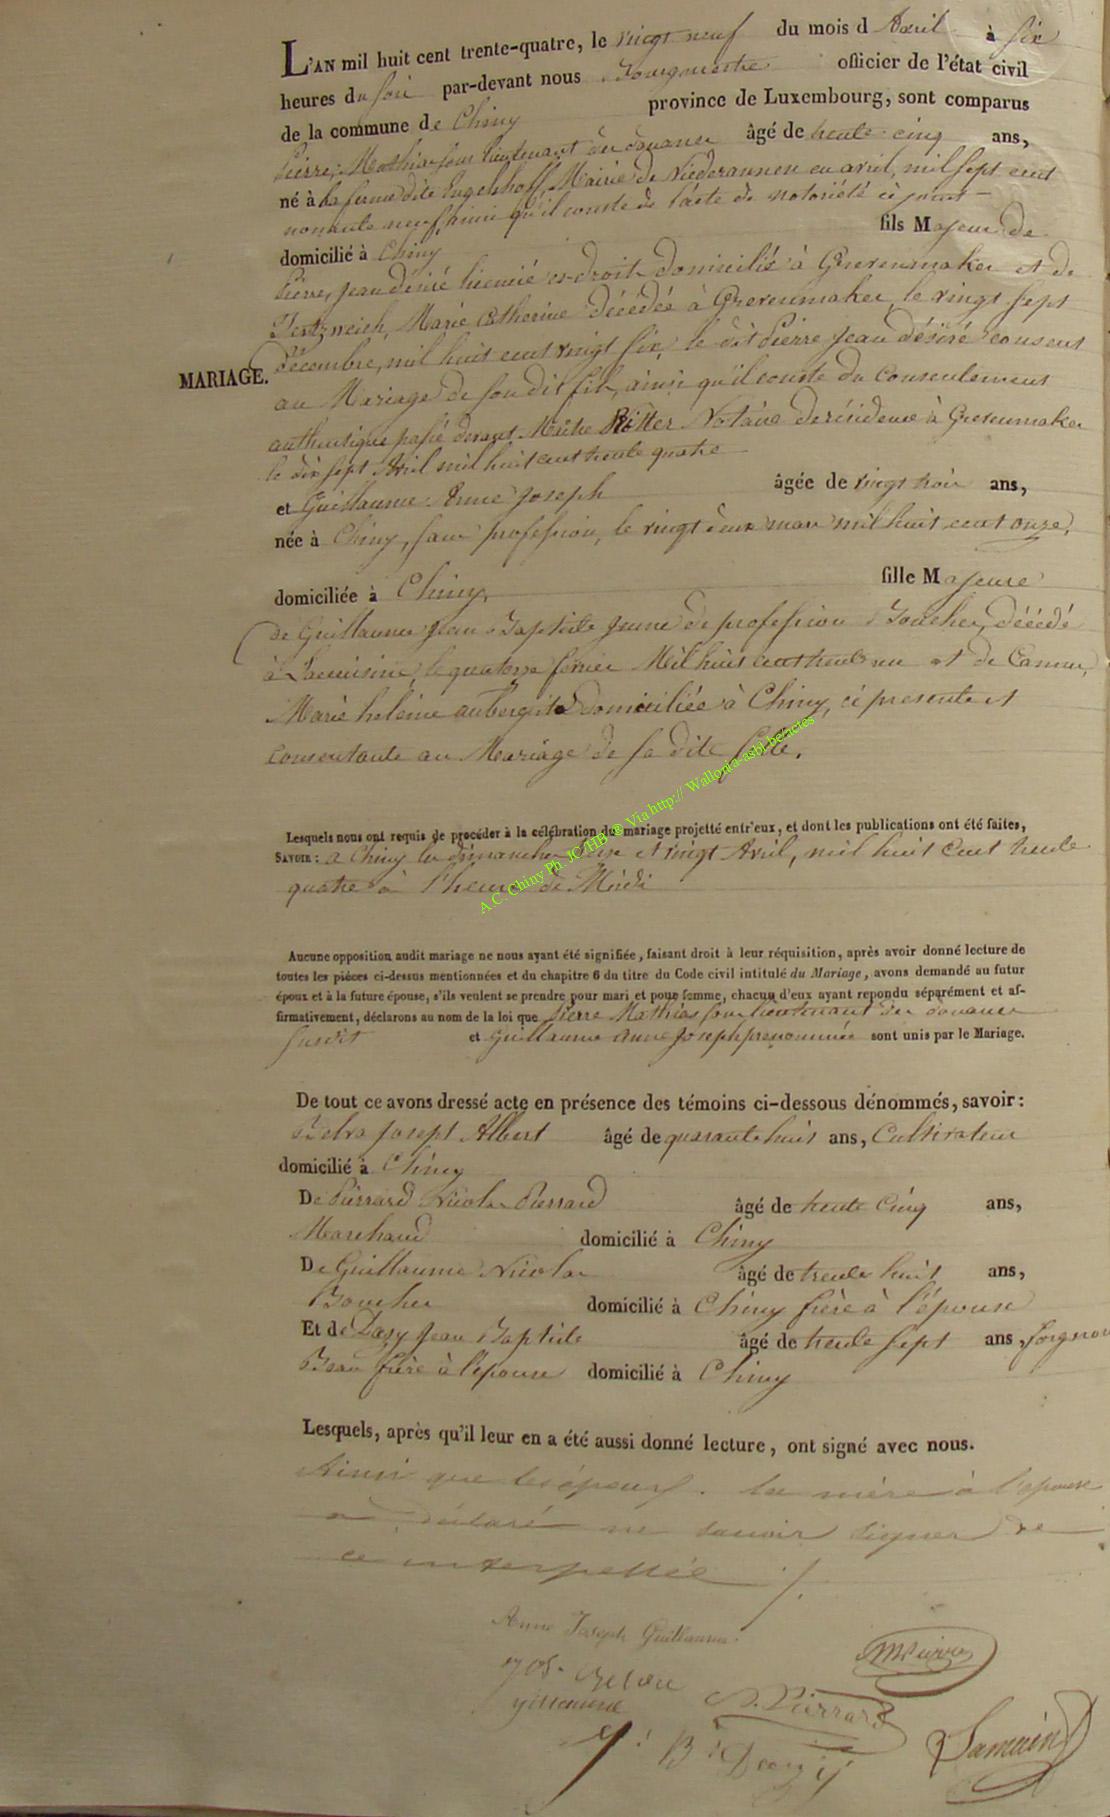 L'AN mil huit cent trente-quatre, le vingt neuf du mois d Avril à six
heures du soir par-devant nous Bourgmestre officier de l'état civil
de la commune de Chiny province de Luxembourg, sont comparus
Pierre, Mathias sous lieutenant des douanes âgé de trente cinq ans,
né à la ferme dite Engelshoff, Mairie de Niederanven en avril, mil sept cent
nonante neuf, ainsi qu'il conste de l'acte de notoriété ci joint
domicilié à Chiny fils Majeur de
Pierre, Jean désiré licencié es-droit domicilié à Grevenmaker et de
Marie Catherine décédée à Grevenmaker, le vingt sept
Décembre, mil huit cent vingt six, le dit Pierre Jean désiré consent
MARIAGE.
au Mariage de son dit fils, ainsi qu'il conste du consentement
authentique passé devant Maitre Ritter Notaire de résidence à Grevenmaker
le dix sept Avril mil huit cent trente quatre
et Guillaume Anne Joseph âgée de vingt trois ans,
née à Chiny, sans profession, le vingt deux mars mil huit cent onze,
domiciliée à Chiny, fille Majeure
de Guillaume Jean Baptiste Jeune de profession Boucher, décédé
à Lacuisine, le quatorze février Mil huit cent trente un et de
Marie helene aubergiste domiciliée à Chiny, ci presente et
consentante au Mariage de sa dite fille.
Lesquels nous ont requis de procéder à la célébration du mariage projetté entr'eux, et dont les publications ont été faites,
SAVOIR : a Chiny les dimanches et vingt Avril, mil huit cent trente
quatre à l'heure de Midi
A.C. Chiny Ph. JC/HB © Via http:// Wallonia-asbl-be/actes
Aucune opposition audit mariage ne nous ayant été signifiée, faisant droit à leur réquisition, après avoir donné lecture de
toutes les pièces ci-dessus mentionnées et du chapitre 6 du titre du Code civil intitulé du Mariage, avons demandé au futur
époux et à la future épouse, s'ils veulent se prendre pour mari et pour femme, chacun d'eux ayant repondu séparément et af-
firmativement, déclarons au nom de la loi que Pierre Mathias sous lieutenant des douanes
susdit et Guillaume anne Joseph prenommée sont unis par le Mariage.
De tout ce avons dressé acte en présence des témoins ci-dessous dénommés, savoir :
Joseph Albert âgé de quarante huit ans, Cultivateur
domicilié à Chiny
De Pierrard Nicolas Pierrard âgé de trente Cinq ans,
Marchand domicilié à Chiny
De Guillaume Nicolas âgé de trente huit ans,
Boucher domicilié à Chiny frère à l'épouse
Et de Dasy Jean Baptiste âgé de trente sept ans, forgeron
Beau frère à l'epouse domicilié à Chiny
Lesquels, après qu'il leur en a été aussi donné lecture, ont signé avec nous.
Ainsi que les époux. la mère à l'epouse
a déclaré ne savoir signer de
ce interpellée /.
Anne Joseph Guillaume
MPierre
N. Pierrard